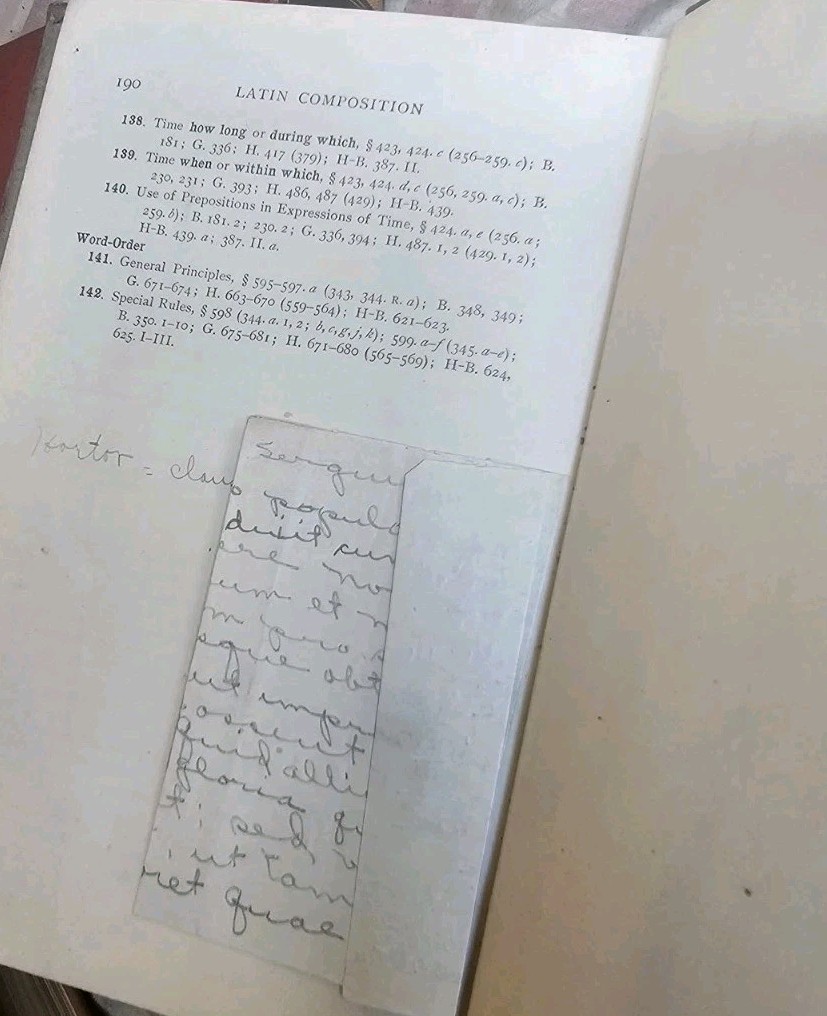 190
LATIN COMPOSITION
138. Time how long or during which, § 423, 424. c (256–259. c); B.
181; G. 336; H. 417 (379); H-B. 387. II.
139. Time when or within which, § 423, 424. d, e (256, 259. a, c); B.
230, 231; G. 393; H. 486, 487 (429); H-B. 439.
140. Use of Prepositions in Expressions of Time, § 424. a, e (256. a;
259. b); B. 181. 2; 230. 2; G. 336, 394; H. 487. 1, 2 (429. 1, 2);
H-B. 439. a; 387. II. a.
Word-Order
141. General Principles, § 595–597. a (343, 344. R. a); B. 348, 349;
G. 671–674; H. 663–670 (559–564); H-B. 621–623.
142. Special Rules, § 598 (344. a. 1, 2; b, c, g, j, k); 599. a–f (345. a–e);
B. 350. 1–10; G. 675–681; H. 671–680 (565–569); H-B. 624,
625. I–III.
Hortor =
populo
duxit cu
ere no
um et
m pro s
sque obt
ut impe
ossent
quid alli
gloria qu
t; sed
ut tam
ret quae